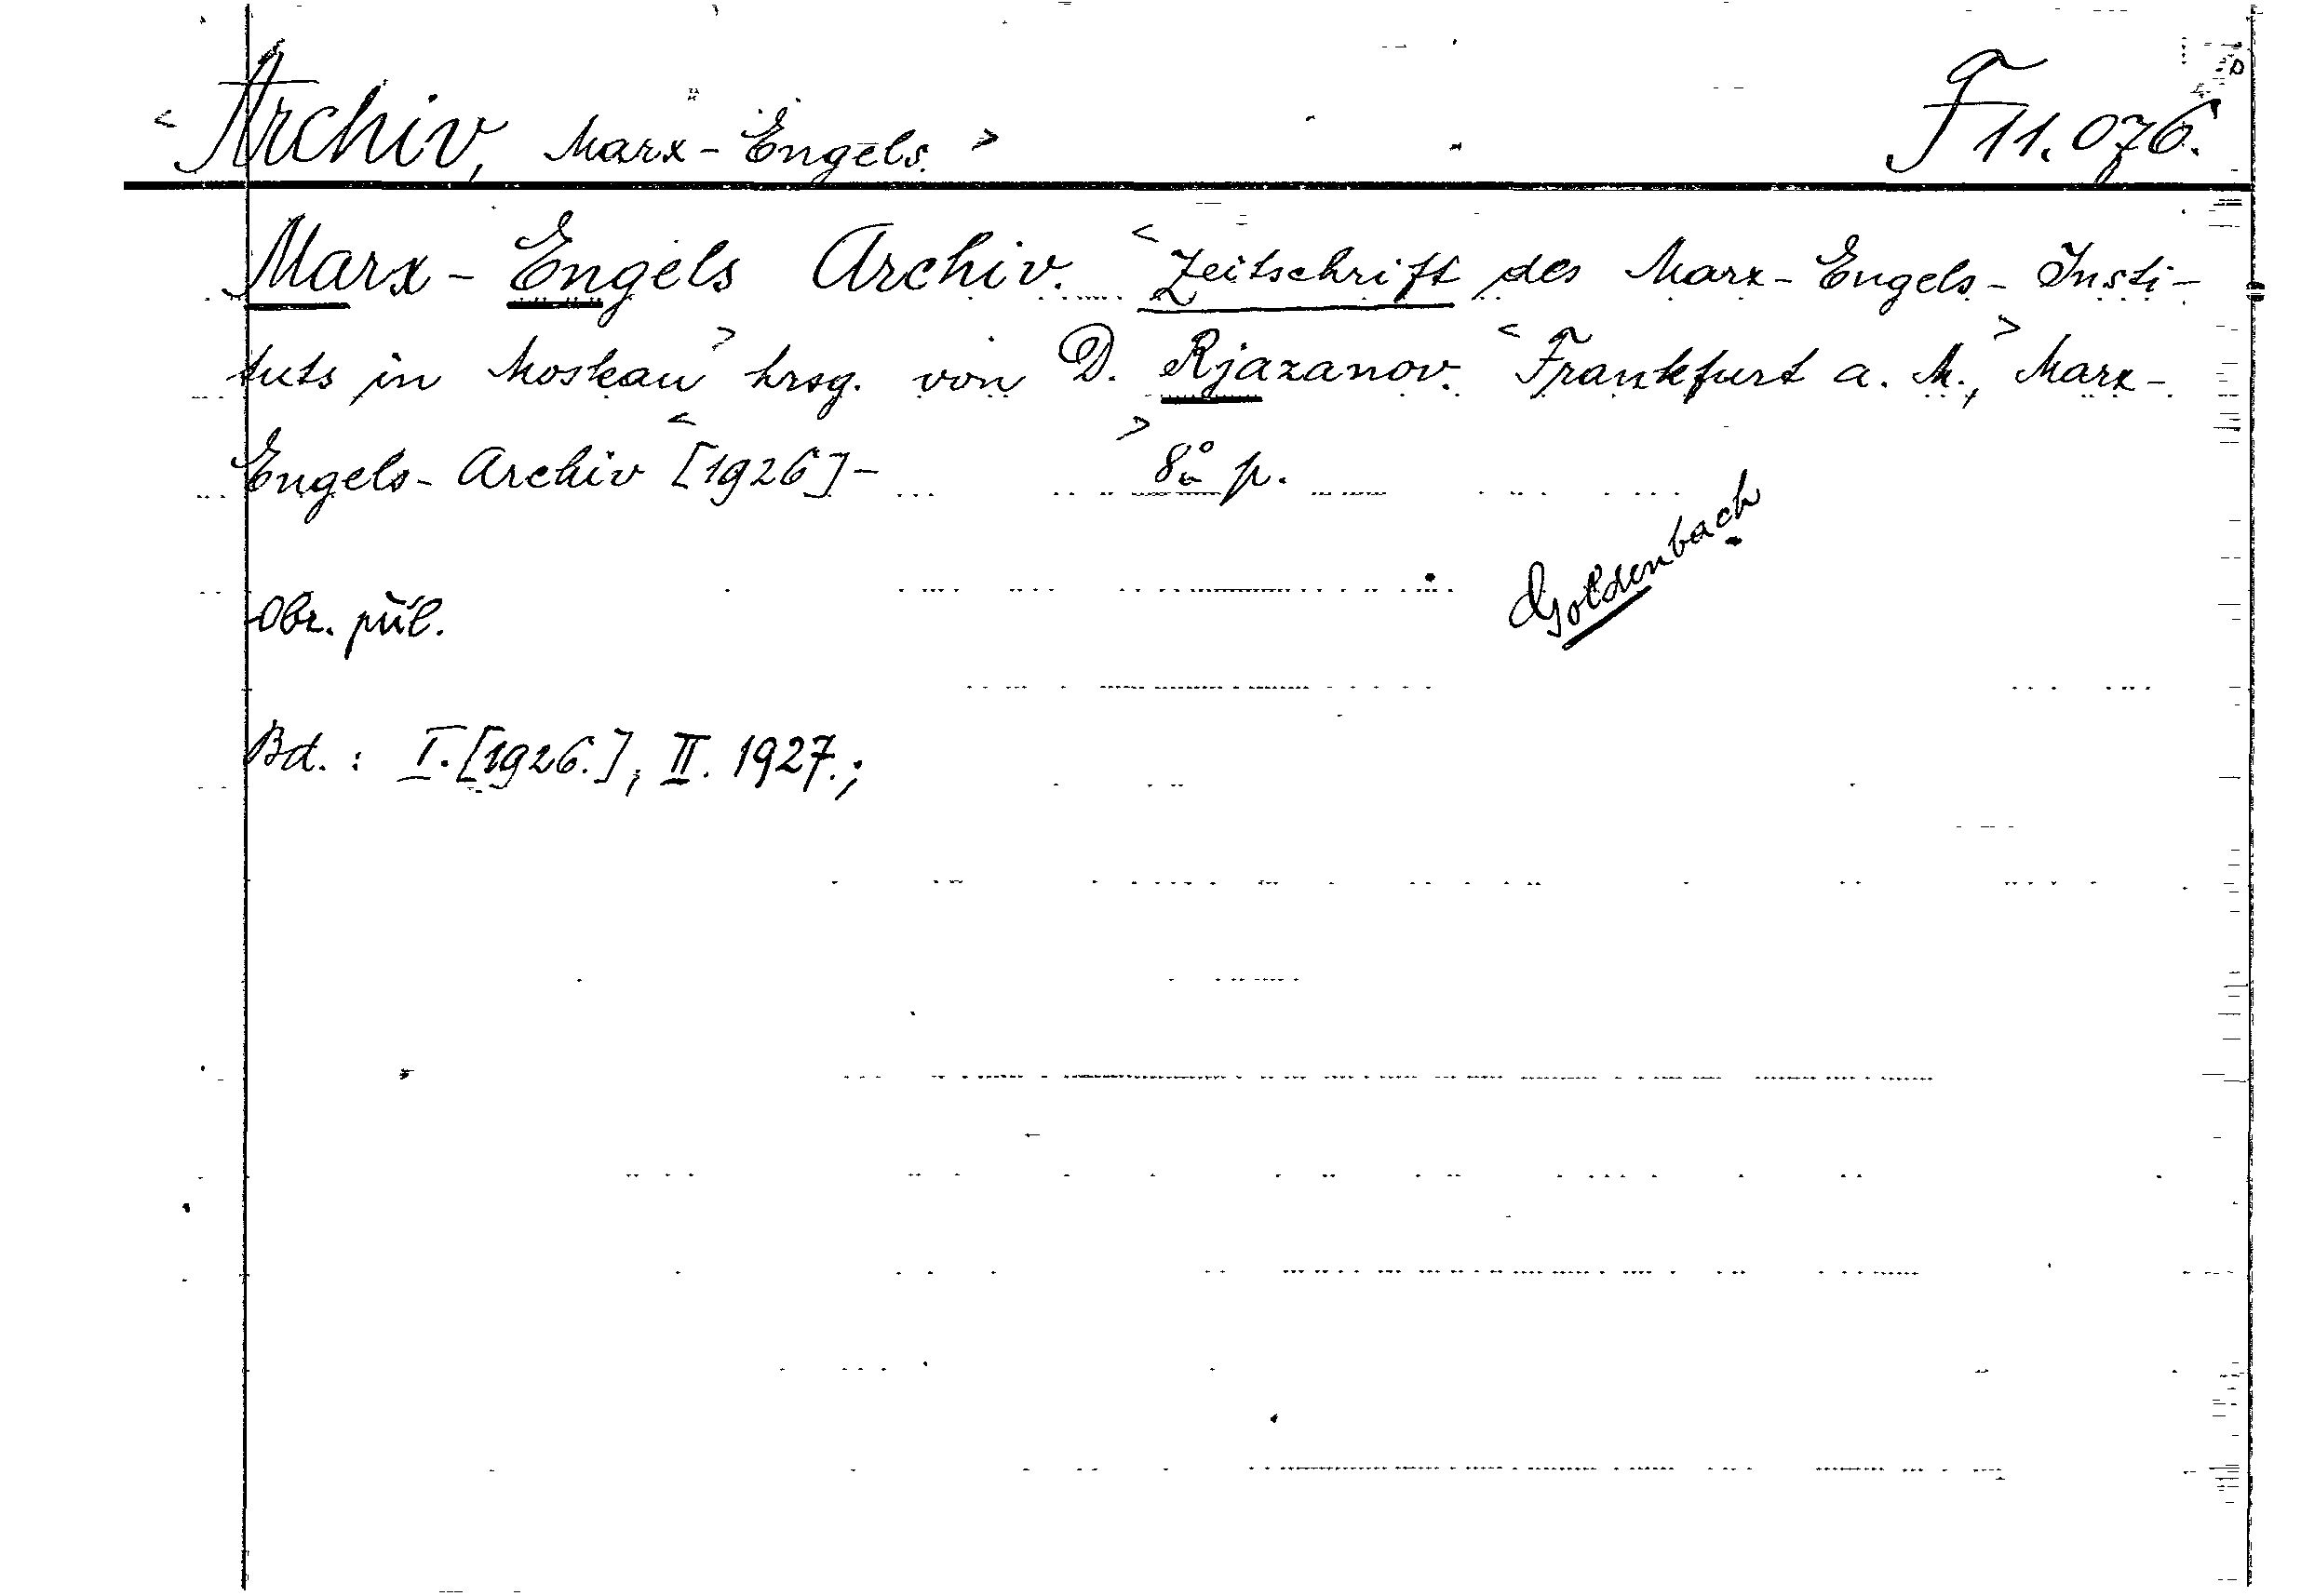 <Archiv, Marx-Engels.> F 11.076.
Marx-Engels Archiv. <Zeitschrift des Marx-Engels-Insti-
tuts in Moskau> hrsg. von D. Rjazanov. <Frankfurt a. M.,> Marx-
Engels-Archiv <[1926]- > 8° p.
Goldenbach
Obr. půl.
Bd.: I. [1926.], II. 1927.;